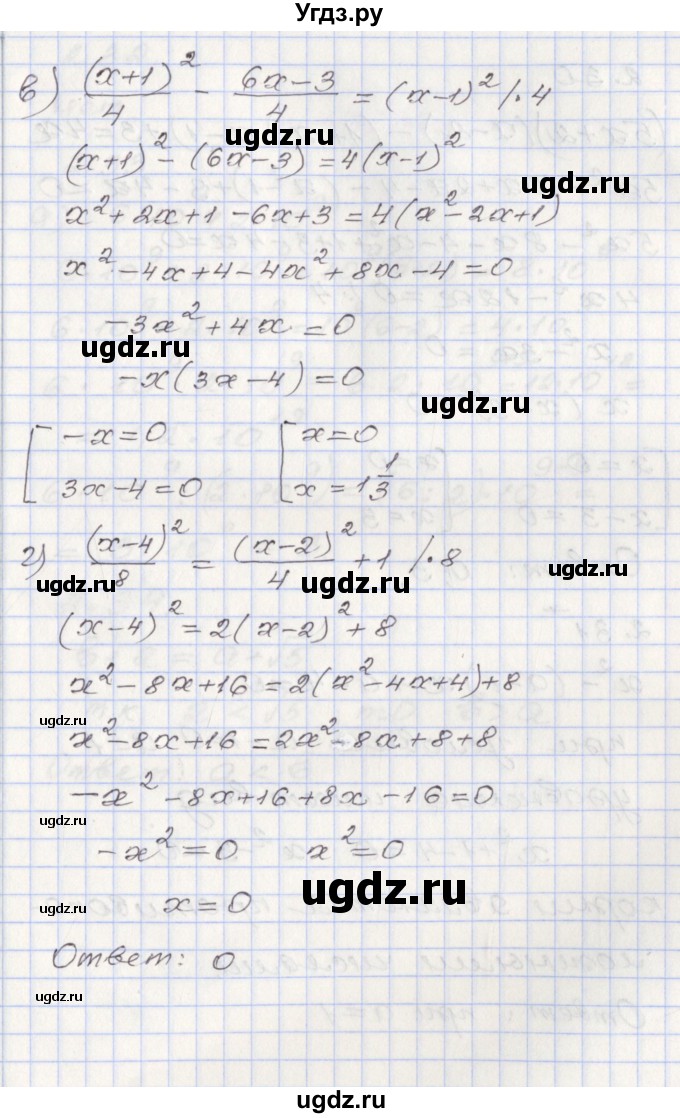 Угдз.ру
в) (x+1)²/4 - (6x-3)/4 = (x-1)² /·4
(x+1)² - (6x-3) = 4(x-1)²
ugdz.ru
ugdz.ru
x² + 2x + 1 - 6x + 3 = 4(x² - 2x + 1)
x² - 4x + 4 - 4x² + 8x - 4 = 0
-3x² + 4x = 0
ugdz.ru
-x(3x-4) = 0
ugdz.ru
[ -x = 0 [ x = 0
3x - 4 = 0 x = 1 1/3
г) (x-4)²/8 = (x-2)²/4 + 1 /·8
ugdz.ru ugdz.ru ugdz.ru
(x-4)² = 2(x-2)² + 8
x² - 8x + 16 = 2(x² - 4x + 4) + 8
ugdz.ru
x² - 8x + 16 = 2x² - 8x + 8 + 8
-x² - 8x + 16 + 8x - 16 = 0
ugdz.ru
-x² = 0 x² = 0
ugdz.ru
ugdz.ru x = 0
Ответ: 0
ugdz.ru
ugdz.ru